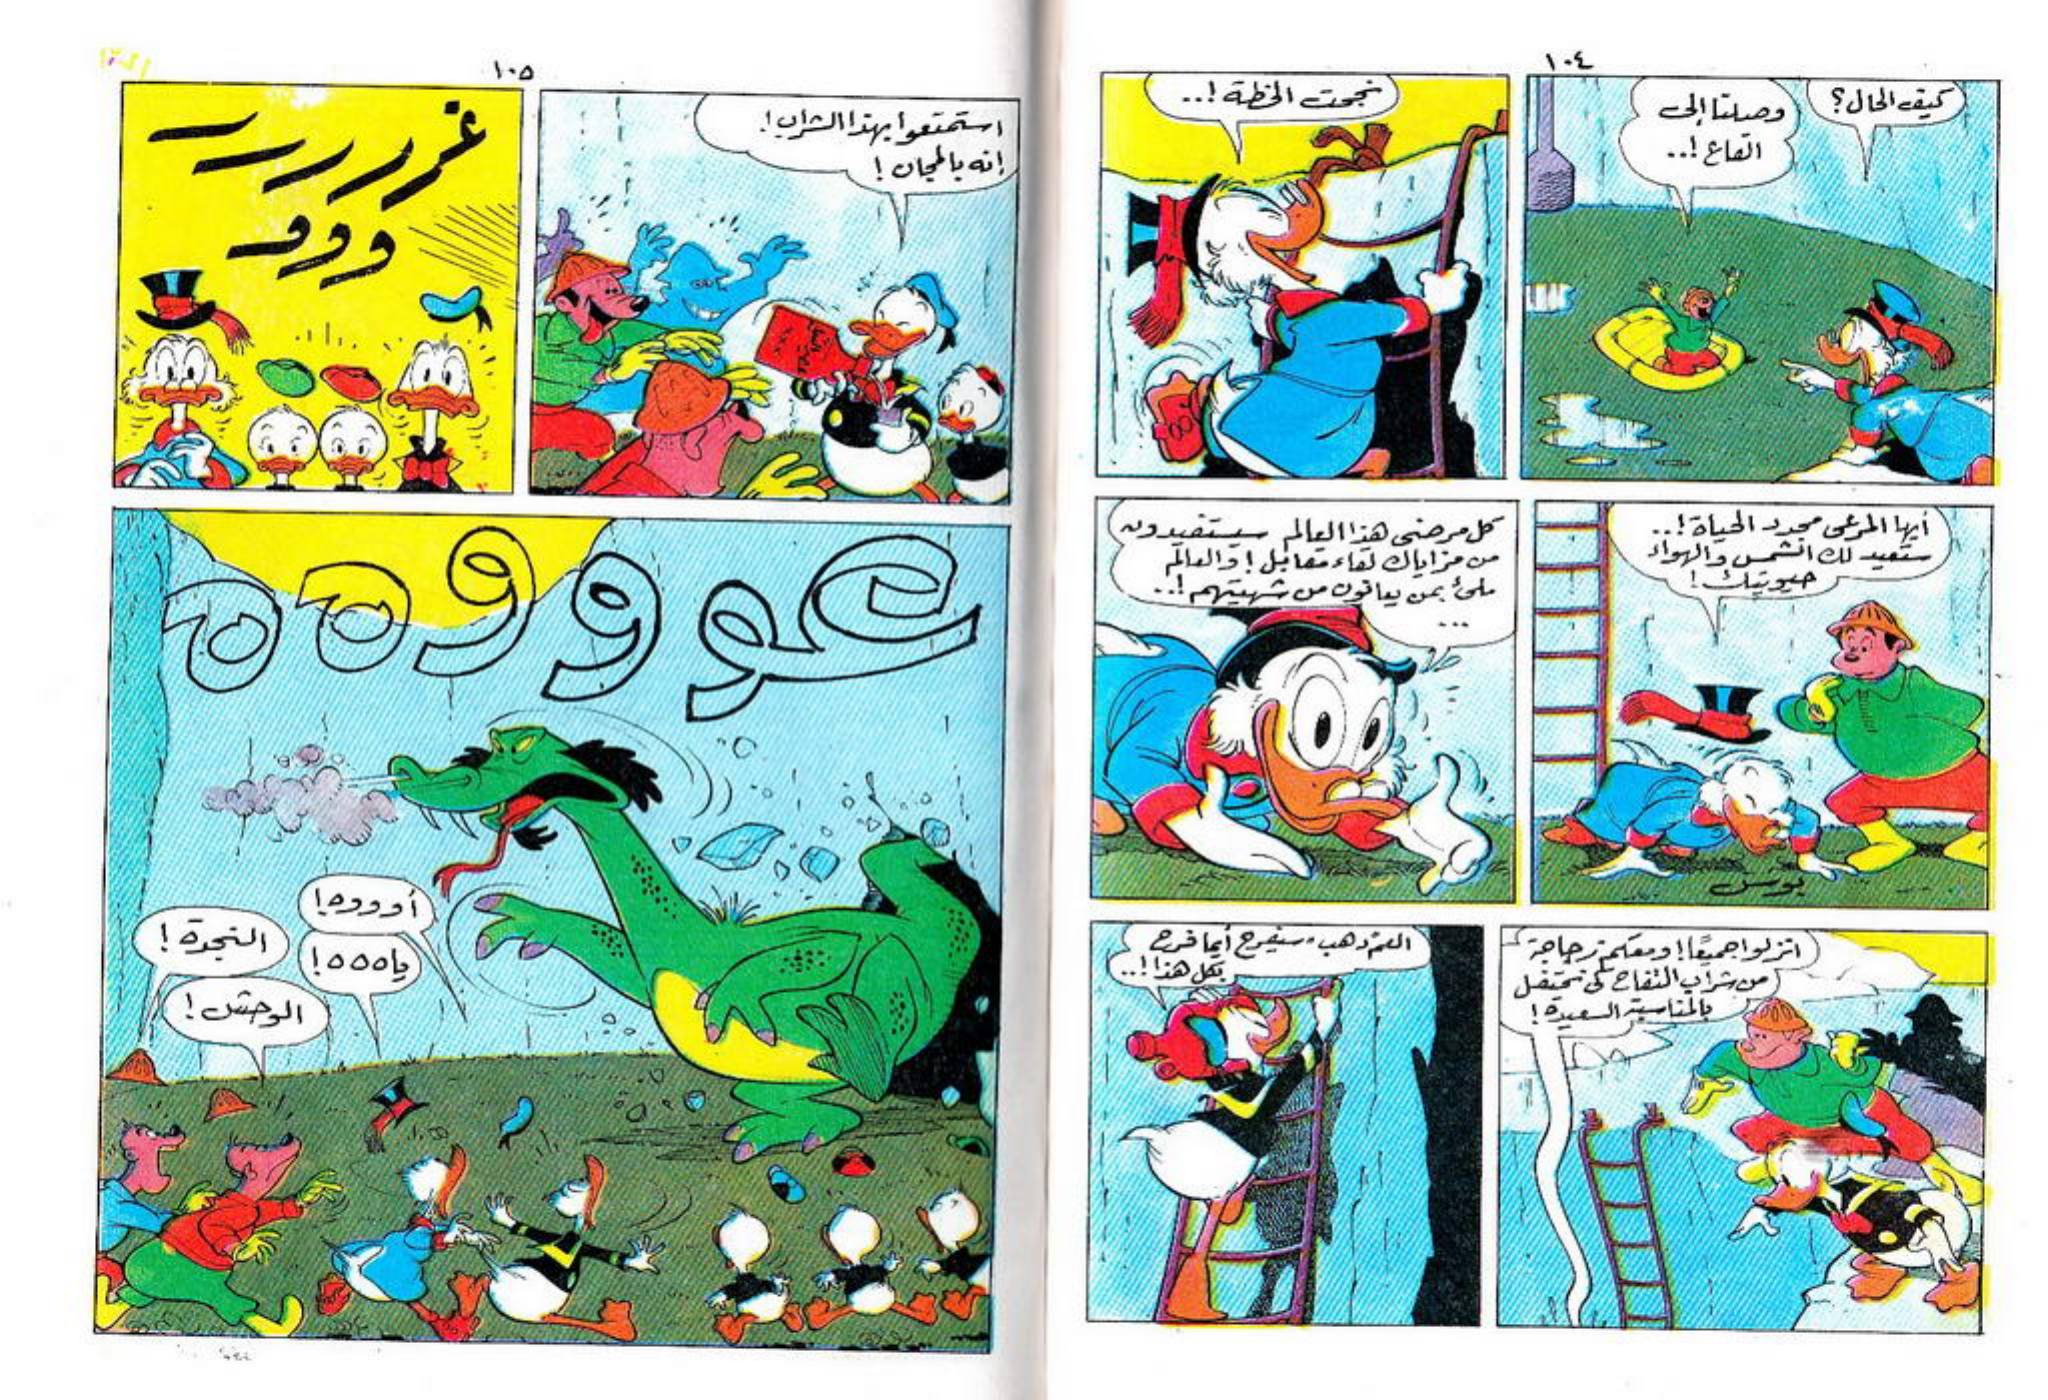 ١٠٤
كيف الحال؟
وصلنا إلى
القاع!..
نجحت الخطة!..
أيها المرعى مجدد الحياة!..
ستعيد لك الشمس والهواء
حيويتك!
بوس
كل مرضى هذا العالم سيستفيدون
من مزاياك لقاء مقابل! والعالم
ملئ بمن يعانون من شهيتهم!..
...
انزلوا جميعًا! ومعكم زجاجة
من شراب التفاح كي نحتفل
بالمناسبة السعيدة!
العم دهب سيفرح أيما فرح
بكل هذا!..
١٠٥
استمتعوا بهذا الشراب!
إنه بالمجان!
غررررر
وووو
عووووههه
أوووه!
ياههه!
النجدة!
الوحش!